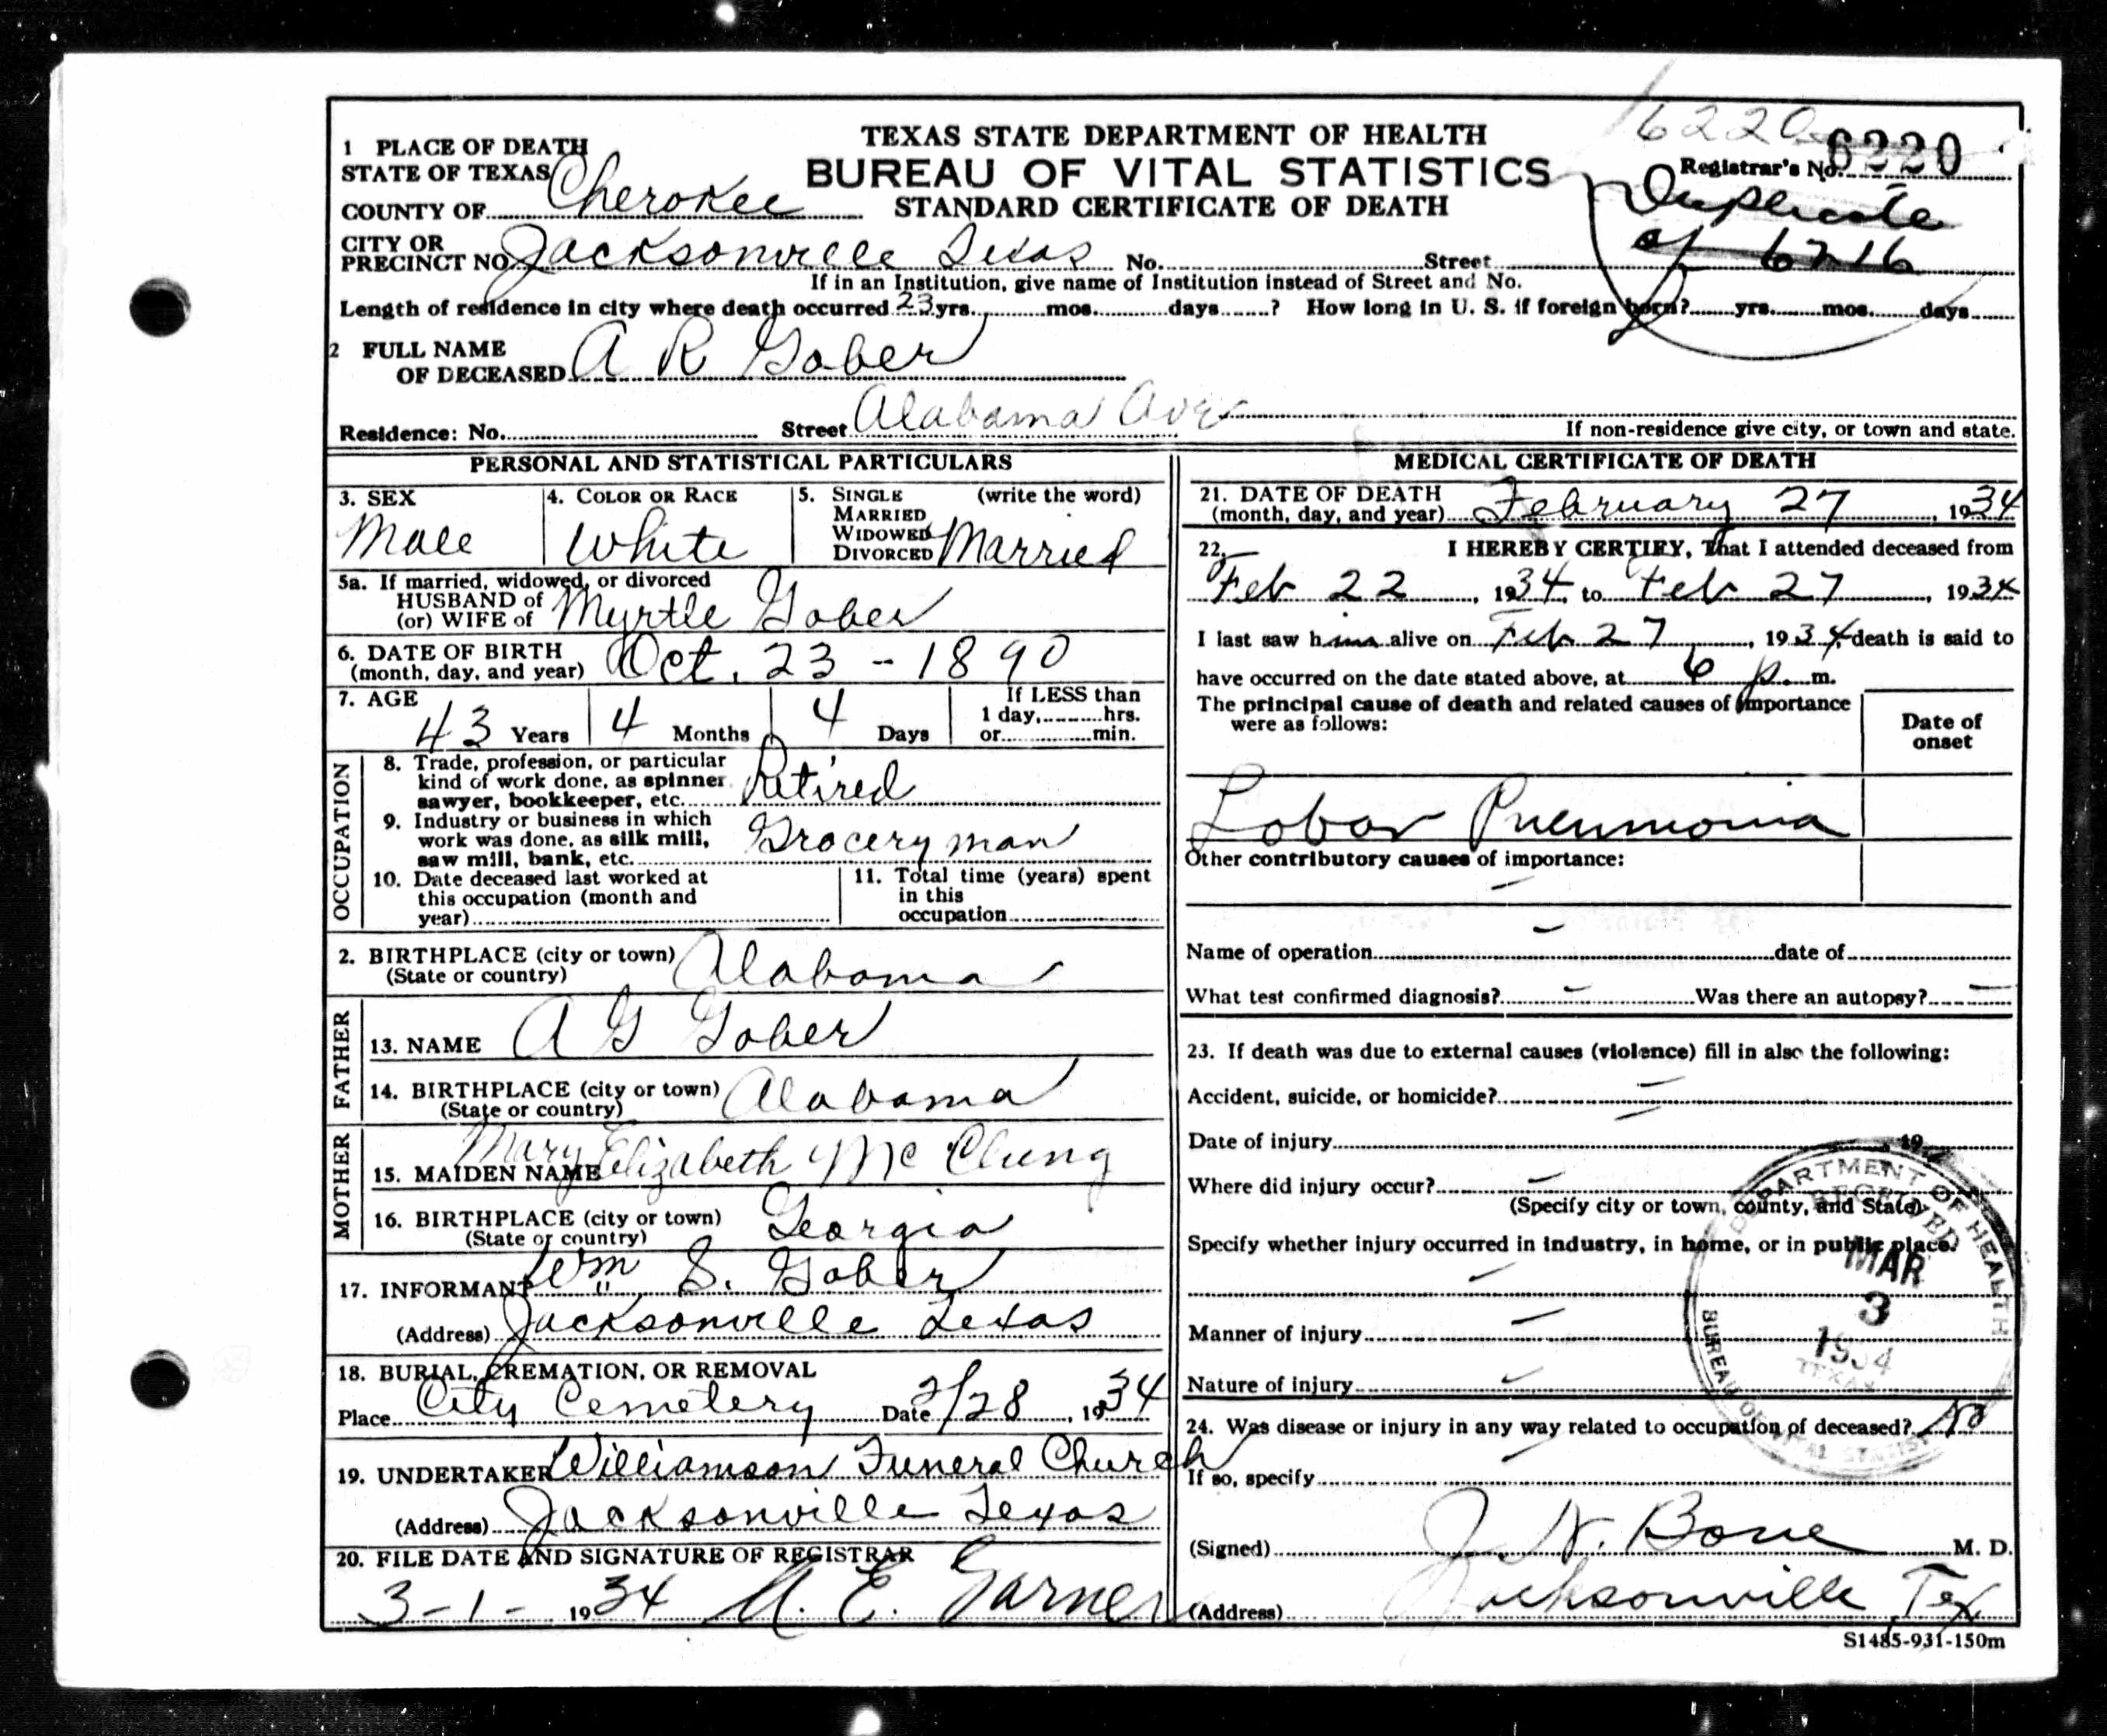 6220
TEXAS STATE DEPARTMENT OF HEALTH
BUREAU OF VITAL STATISTICS
STANDARD CERTIFICATE OF DEATH
Registrar's No. 6220
Duplicate
of 6216
1 PLACE OF DEATH
STATE OF TEXAS
COUNTY OF Cherokee
CITY OR
PRECINCT NO Jacksonville Texas No. Street
If in an Institution, give name of Institution instead of Street and No.
Length of residence in city where death occurred 23 yrs. mos. days ? How long in U. S. if foreign born? yrs. mos. days
2 FULL NAME
OF DECEASED A R Gober
Residence: No. Street Alabama Ave
If non-residence give city, or town and state.
PERSONAL AND STATISTICAL PARTICULARS
3. SEX 4. COLOR OR RACE 5. SINGLE (write the word)
MARRIED
WIDOWED
DIVORCED
Male White Married
5a. If married, widowed, or divorced
HUSBAND of
(or) WIFE of Myrtle Gober
6. DATE OF BIRTH
(month, day, and year) Oct. 23 - 1890
7. AGE If LESS than
43 Years 4 Months 4 Days 1 day, hrs.
or min.
OCCUPATION
8. Trade, profession, or particular
kind of work done, as spinner
sawyer, bookkeeper, etc. Retired
9. Industry or business in which
work was done, as silk mill,
saw mill, bank, etc. Grocery man
10. Date deceased last worked at
this occupation (month and
year)
11. Total time (years) spent
in this
occupation
2. BIRTHPLACE (city or town) Alabama
(State or country)
FATHER
13. NAME A G Gober
14. BIRTHPLACE (city or town) Alabama
(State or country)
MOTHER
15. MAIDEN NAME Mary Elizabeth McClung
16. BIRTHPLACE (city or town) Georgia
(State or country)
17. INFORMANT Wm S. Gober
(Address) Jacksonville Texas
18. BURIAL, CREMATION, OR REMOVAL
Place City Cemetery Date 2/28, 1934
19. UNDERTAKER Williamson Funeral Church
(Address) Jacksonville Texas
20. FILE DATE AND SIGNATURE OF REGISTRAR
3-1- 1934 A. E. Garner
MEDICAL CERTIFICATE OF DEATH
21. DATE OF DEATH
(month, day, and year) February 27, 1934
22. I HEREBY CERTIFY, That I attended deceased from
Feb 22, 1934, to Feb 27, 1934
I last saw him alive on Feb 27, 1934, death is said to
have occurred on the date stated above, at 6 p. m.
The principal cause of death and related causes of importance
were as follows:
Date of
onset
Lobar Pneumonia
Other contributory causes of importance:
-
-
Name of operation date of
What test confirmed diagnosis? - Was there an autopsy? -
23. If death was due to external causes (violence) fill in also the following:
Accident, suicide, or homicide? -
Date of injury - 19
Where did injury occur? -
(Specify city or town, county, and State)
Specify whether injury occurred in industry, in home, or in public place.
-
Manner of injury -
Nature of injury -
24. Was disease or injury in any way related to occupation of deceased? No
If so, specify -
(Signed) J N. Bone M. D.
(Address) Jacksonville, Tex
DEPARTMENT OF HEALTH
RECEIVED
MAR
3
1934
TEXAS
BUREAU OF VITAL STATIST
S1485-931-150m